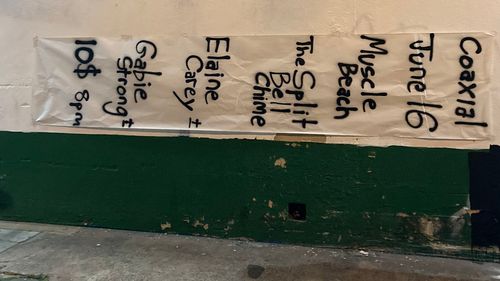 Coaxial
June 16
Muscle
Beach
The Split
Bell
Chime
Elaine
Carey ±
Gabie
Strong ±
10$ 8pm